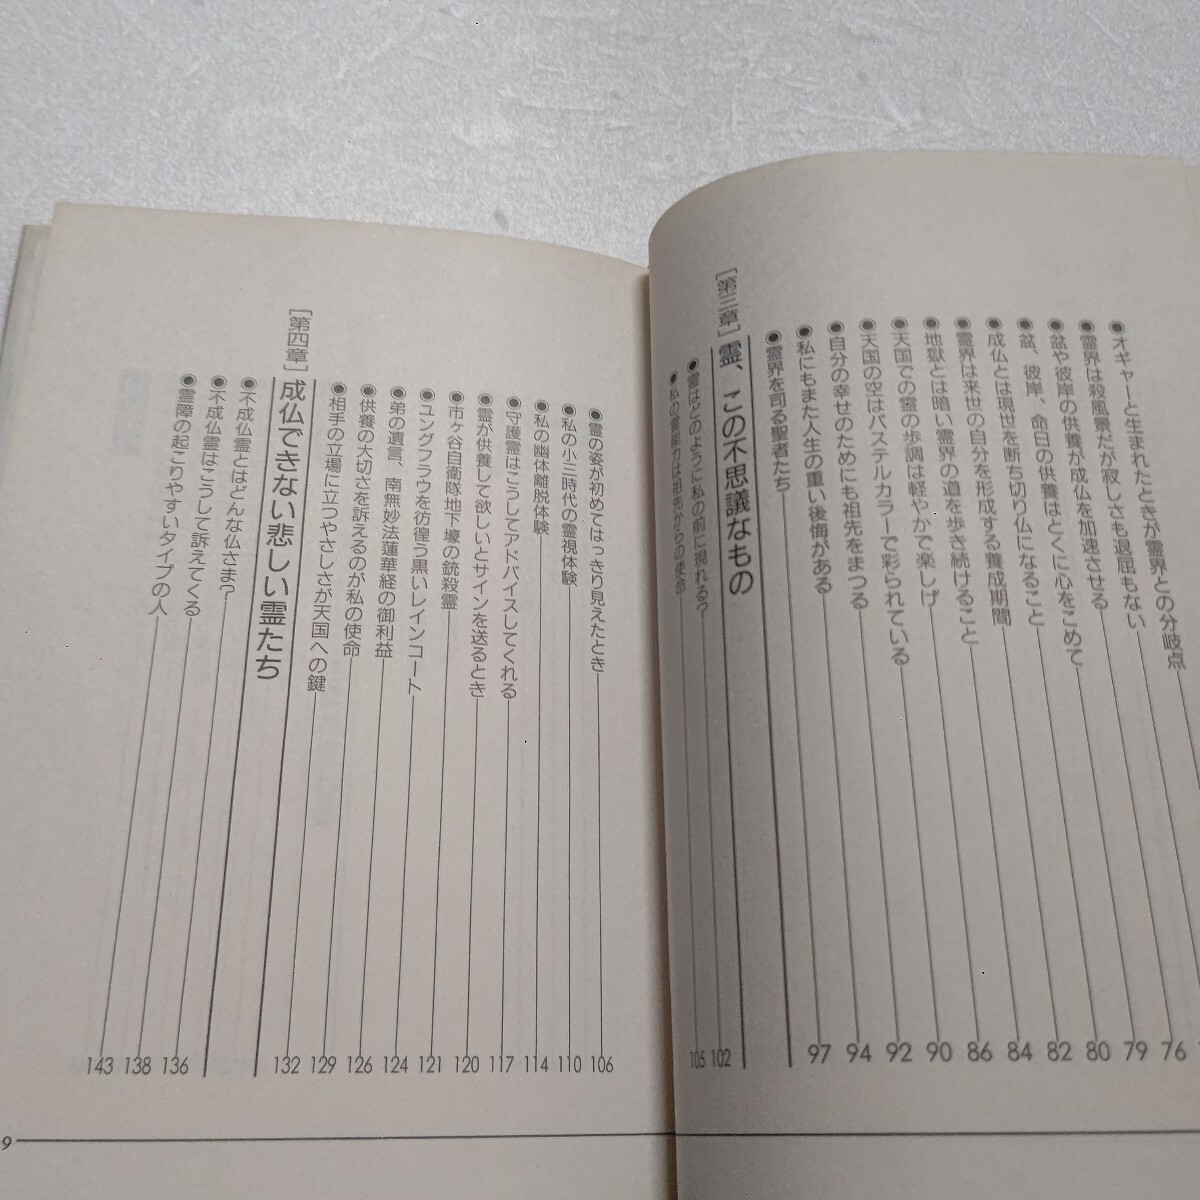 ●オギャーと生まれたときが霊界との分岐点
●霊界は殺風景だが寂しさも退屈もない
●盆や彼岸の供養が成仏を加速させる 76
●盆、彼岸、命日の供養はとくに心をこめて 79
●成仏とは現世を断ち切り仏になること 80
●霊界は来世の自分を形成する養成期間 82
●地獄とは暗い霊界の道を歩き続けること 84
●天国での霊の歩調は軽やかで楽しげ 86
●天国の空はパステルカラーで彩られている 90
●自分の幸せのためにも祖先をまつる 92
●私にもまた人生の重い後悔がある 94
●霊界を司る聖者たち 97
[第三章]霊、この不思議なもの
●霊はどのように私の前に現れる? 102
●私の霊能力は祖先からの使命 105
●霊の姿が初めてはっきり見えたとき 106
●私の小三時代の霊視体験 110
●私の幽体離脱体験 114
●守護霊はこうしてアドバイスしてくれる 117
●霊が供養して欲しいとサインを送るとき 120
●市ヶ谷自衛隊地下壕の銃殺霊 121
●ユングフラウを彷徨う黒いレインコート 124
●弟の遺言、南無妙法蓮華経の御利益 126
●供養の大切さを訴えるのが私の使命 129
●相手の立場に立つやさしさが天国への鍵 132
[第四章]成仏できない悲しい霊たち
●不成仏霊とはどんな仏さま? 136
●不成仏霊はこうして訴えてくる 138
●霊障の起こりやすいタイプの人 143
9